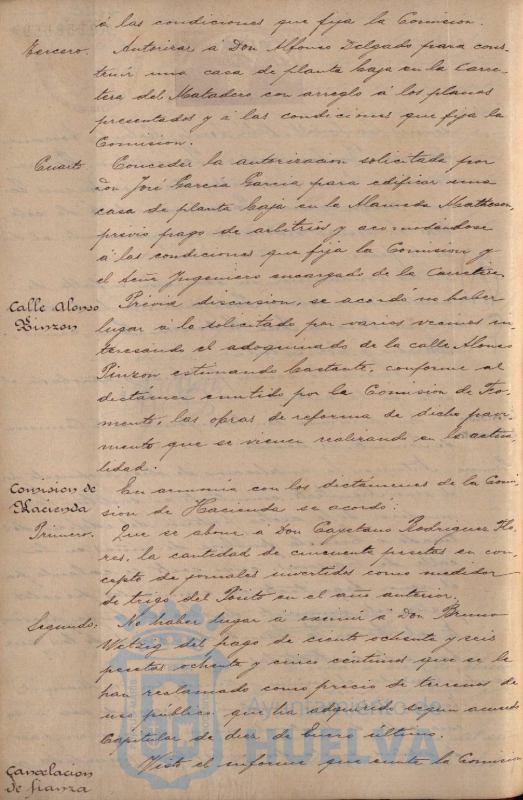 á las condiciones que fija la Comision.
Tercero. Autorizar á Don Alfonso Delgado para cons-
truir una casa de planta baja en la Carre-
tera del Matadero con arreglo á los planos
presentados y á las condiciones que fija la
Comision.
Cuarto Conceder la autorizacion solicitada por
Don José Garcia Garcia para edificar una
casa de planta baja en la Alameda Matheson,
previo pago de arbitrios y acomodándose
á las condiciones que fija la Comision y
el Señr Ingeniero encargado de la Carretera.
Calle Alonso
Pinzon
Prévia discusion, se acordó no haber
lugar á lo solicitado por varios vecinos in-
teresando el adoquinado de la calle Alonso
Pinzon estimando bastante, conforme al
dictámen emitido por la Comision de Fo-
mento, las obras de reforma de dicho pavi-
mento que se vienen realizando en la actua-
lidad.
Comision de
Hacienda
En armonia con los dictámenes de la Comi-
sion de Hacienda se acordó:
Primero. Que se abone á Don Cayetano Rodriguez Flo-
res, la cantidad de cincuenta pesetas en con-
cepto de jornales invertidos como medidor
de trigo del Pósito en el año anterior.
Segundo. No haber lugar á eximir á Don Bruno
Wetzig del pago de ciento ochenta y seis
pesetas ochenta y cinco céntimos que se le
han reclamado como precio de terrenos de
uso publico que ha adquirido segun acuerdo
Capitular de diez de Enero último.
Cancelacion
de fianza
Visto el informe que emite la Comision
Ayuntamiento de
HUELVA